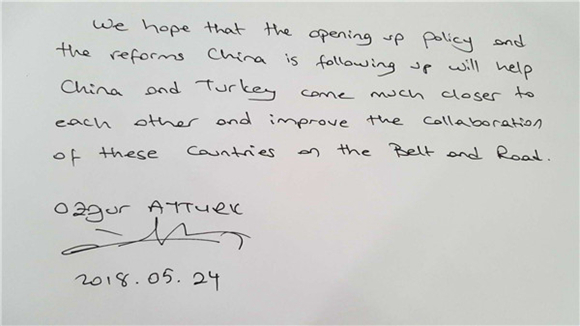 We hope that the opening up policy and
the reforms China is following up will help
China and Turkey come much closer to
each other and improve the collaboration
of these countries on the Belt and Road.
Ozgur ATTUEK
2018.05.24